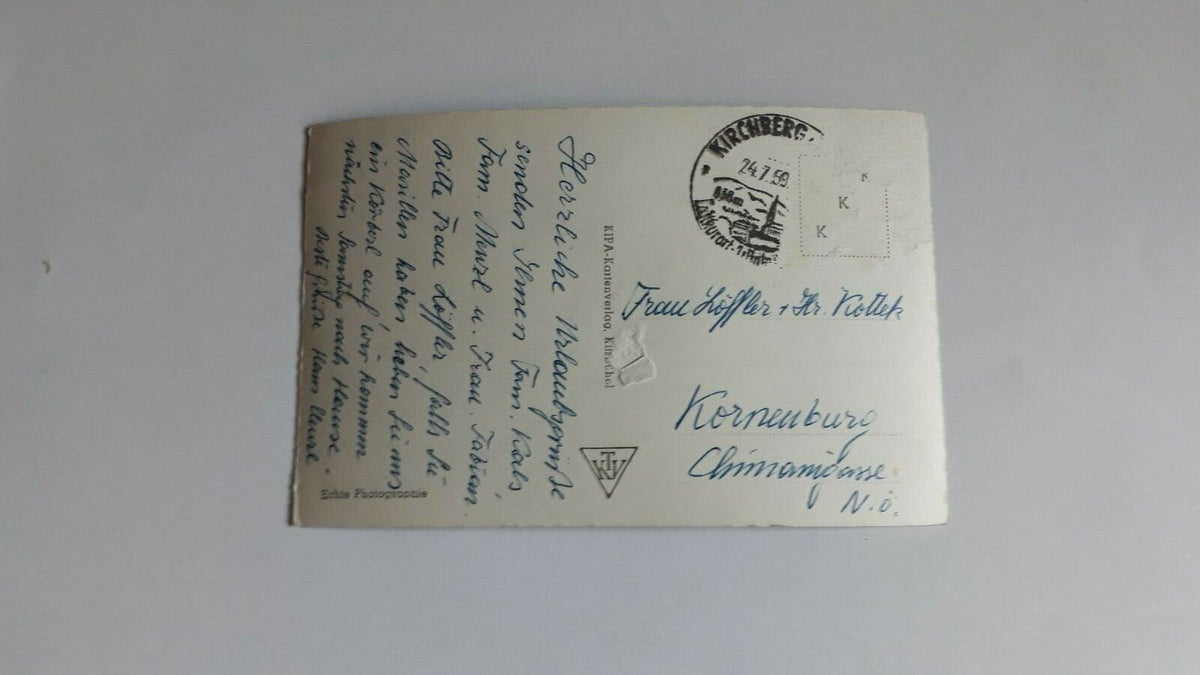 Herrliche Urlaubsgrüße
senden Ihnen Fam. Kals
Fam. Menzl u. Frau. Fabian.
Bitte Frau Löffler, falls Sie
Marillen haben heben Sie uns
ein Körberl auf, wir kommen
nächsten Samstag nach Hause.
Beste Grüße Hans
Echte Photographie
KIPA-Kartenverlag, Kitzbühel
KTV
KIRCHBERG
24.7.59
Luftkurort
K
K
K
Frau Löffler + Hr. Kottek
Kornenburg
Chimanigasse
N.Ö.